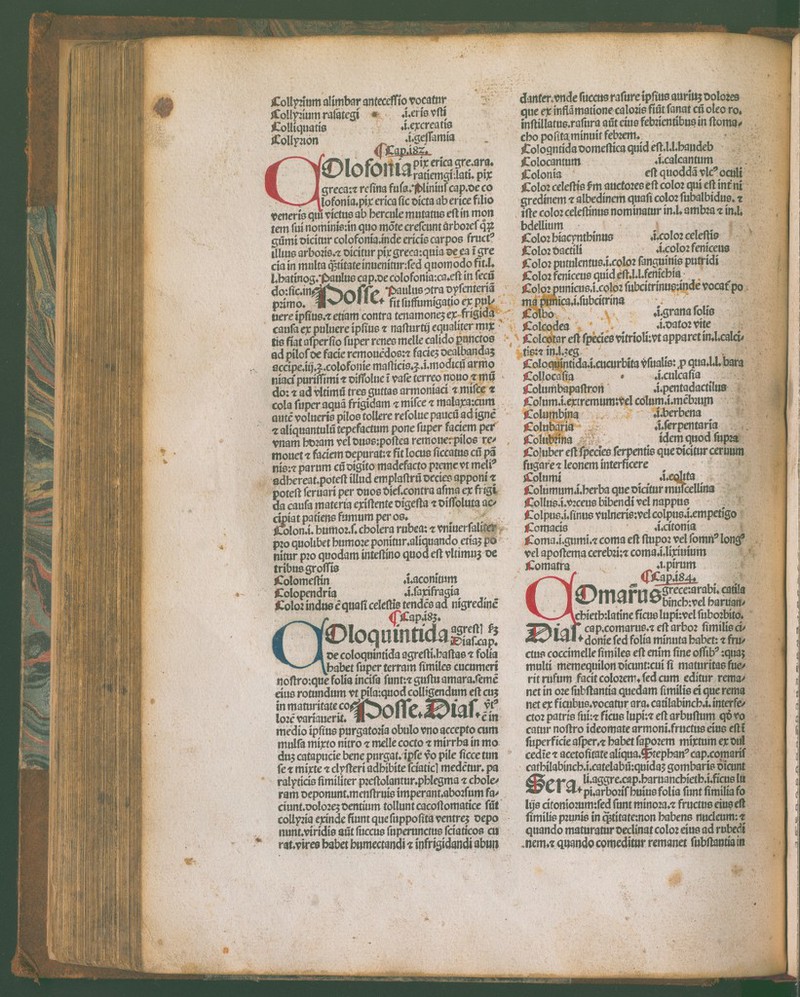 Collyrium alimbar antecessio vocatur
Collyrium rasategi .i. eris vsti
Colliquatis .i. excreatis
Collyrion .i. gessamia
¶ Cap. 182.
COlofonia pix erica gre. ara.
ratiemgi: lati. pix
greca: ⁊ resina fusa. Plinius cap. de co
lofonia. pix erica sic dicta ab erice filio
veneris qui victus ab hercule mutatus est in mon
tem sui nominis: in quo mōte crescunt arbores
gūmi dicitur colofonia. inde ericis carpos fructꝰ
illius arboris. ⁊ dicitur pix greca: quia de ea ī gre
cia in multa q̄titate inuenitur: sed quomodo fit. l.
l. hatinog. Paulus cap. de colofonia: ca. est in secū
do: sic. in Posse. Paulus ɔtra dysenteriā
primo. fit suffumigatio ex pul
uere ipsius. ⁊ etiam contra tenamonez ex frigida
causa ex puluere ipsius ⁊ nasturtij equaliter mix
tis fiat aspersio super renes melle calido punctos
ad pilos de facie remouēdos: ⁊ faciez dealbandaz
accipe. iij. ʒ. colofonie masticis. ʒ. i. modicū armo
niaci purissimi ⁊ dissolue ī vase terreo nouo ⁊ mū
do: ⁊ ad vltimū tres guttas armoniaci ⁊ misce ⁊
cola super aquā frigidam ⁊ misce ⁊ malaxa: cum
autē volueris pilos tollere resolue paucū ad ignē
⁊ aliquantulū tepefactum pone super faciem per
vnam horam vel duas: postea remoue: pilos re
mouet ⁊ faciem depurat: ⁊ fit locus siccatus cū pā
nis: ⁊ parum cū digito madefacto preme vt meliꝰ
adhereat. potest illud emplastrū decies apponi ⁊
potest seruari per duos dies. contra asma ex frigi
da causa materia existente digesta ⁊ dissoluta ac
cipiat patiens fumum per os.
Colon. i. humor. s. cholera rubea: ⁊ vniuersaliter
pro quolibet humore ponitur. aliquando etiaz po
nitur pro quodam intestino quod est vltimuz de
tribus grossis
Colomestin .i. aconitum
Colopendria .i. saxifragia
Color indus ē quasi celestis tendēs ad nigredinē
¶ Cap. 183.
COloquintida agrestꝭ
Dias. cap.
de coloquintida agresti. hastas ⁊ folia
habet super terram similes cucumeri
nostro: que folia incisa sunt: ⁊ gustu amara. semē
eius rotundum vt pila: quod colligendum est cuz
in maturitate co
lorē variauerit. Posse. Dias. ē in
medio ipsius purgatoria obulo vno accepto cum
mulsa mixto nitro ⁊ melle cocto ⁊ mirrha in mo
duz catapucie bene purgat. ipse v̄o pile sicce tun
se ⁊ mixte ⁊ clysteri adhibite sciaticꝭ medētur. pa
ralyticis similiter prestolantur. phlegma ⁊ chole
ram deponunt. menstruis imperant. aborsum fa
ciunt. dolorez dentium tollunt cacostomatice sūt
collyria exinde fiunt que supposita ventrez depo
nunt. viridis aūt succus superunctus sciaticos cu
rat. vires habet humectandi ⁊ infrigidandi abun
danter. vnde succus rasure ipsius auriuz dolores
que ex inflāmatione caloris fiūt sanat cū oleo ro.
instillatus. rasura aūt eius febrientibus in stoma
cho posita minuit febrem.
Cologntida domestica quid est. l. l. haudeb
Colocantum .i. calcantum
Colonia est quoddā vlcꝰ oculi
Color celestis s̄m auctores est color qui est int̄ ni
gredinem ⁊ albedinem quasi color subalbidus. ⁊
iste color celestinus nominatur in. l. ambra ⁊ in. l.
bdellium
Color hiacynthinus .i. color celestis
Color dactili .i. color feniceus
Color putulentus. i. color sanguinis putridi
Color feniceus quid est. l. l. fenichia
Color punicus. i. color subcitrinus: inde vocat̄ po
ma punica. i. subcitrina
Colbo .i. grana solis
Colcodea .i. dator vite
Colcotar est species vitrioli: vt apparet in. l. calci
tis: ⁊ in. l. zeg
Coloquintida. i. cucurbita vsualis: ꝓ qua. l. l. hara
Collocasia .i. culcasia
Columbapastron .i. pentadactilus
Colum. i. extremum: vel colum. i. mēbrum
Columbina .i. berbena
Colubaria .i. serpentaria
Colubrina idem quod supra
Coluber est species serpentis que dicitur ceruum
fugare ⁊ leonem interficere
Columi .i. colita
Columum. i. herba que dicitur muscellina
Collus. i. vrceus bibendi vel nappus
Colpus. i. sinus vulneris: vel colpus. i. empetigo
Comacis .i. citonia
Coma. i. gumi. ⁊ coma est stupor vel somnꝰ longꝰ
vel apostema cerebri: ⁊ coma. i. lixiuium
Comatra .i. pirum
¶ Cap. 184.
COmarus grece: arabi. catila
binch: vel harnan
chieth: latine ficus lupi: vel suborbito.
Dias. cap. comarus. ⁊ est arbor similis ci
donie sed folia minuta habet: ⁊ fru
ctus coccimelle similes est enim sine ossibꝰ: quaz
multi memequilon dicunt: cui si maturitas fue
rit rufum facit colorem. sed cum editur rema
net in ore substantia quedam similis ei que rema
net ex ficubus. vocatur ara. catilabinch. i. interfe
ctor patris sui: ⁊ ficus lupi: ⁊ est arbustum qd̄ vo
catur nostro ideomate armoni. fructus eius est ī
superficie asper. ⁊ habet saporem mixtum ex dul
cedīe ⁊ acetositate aliqua. Stephanꝰ cap. comaris
cathilabinch. i. catelabū: quidaz gombaris dicunt
Sera. li. aggre. cap. harnanchieth. i. ficus lu
pi. arboris huius folia sunt similia fo
lijs citoniorum: sed sunt minora. ⁊ fructus eius est
similis prunis in q̄titate: non habens nucleum: ⁊
quando maturatur declinat color eius ad rubedi
nem. ⁊ quando comeditur remanet substantia in